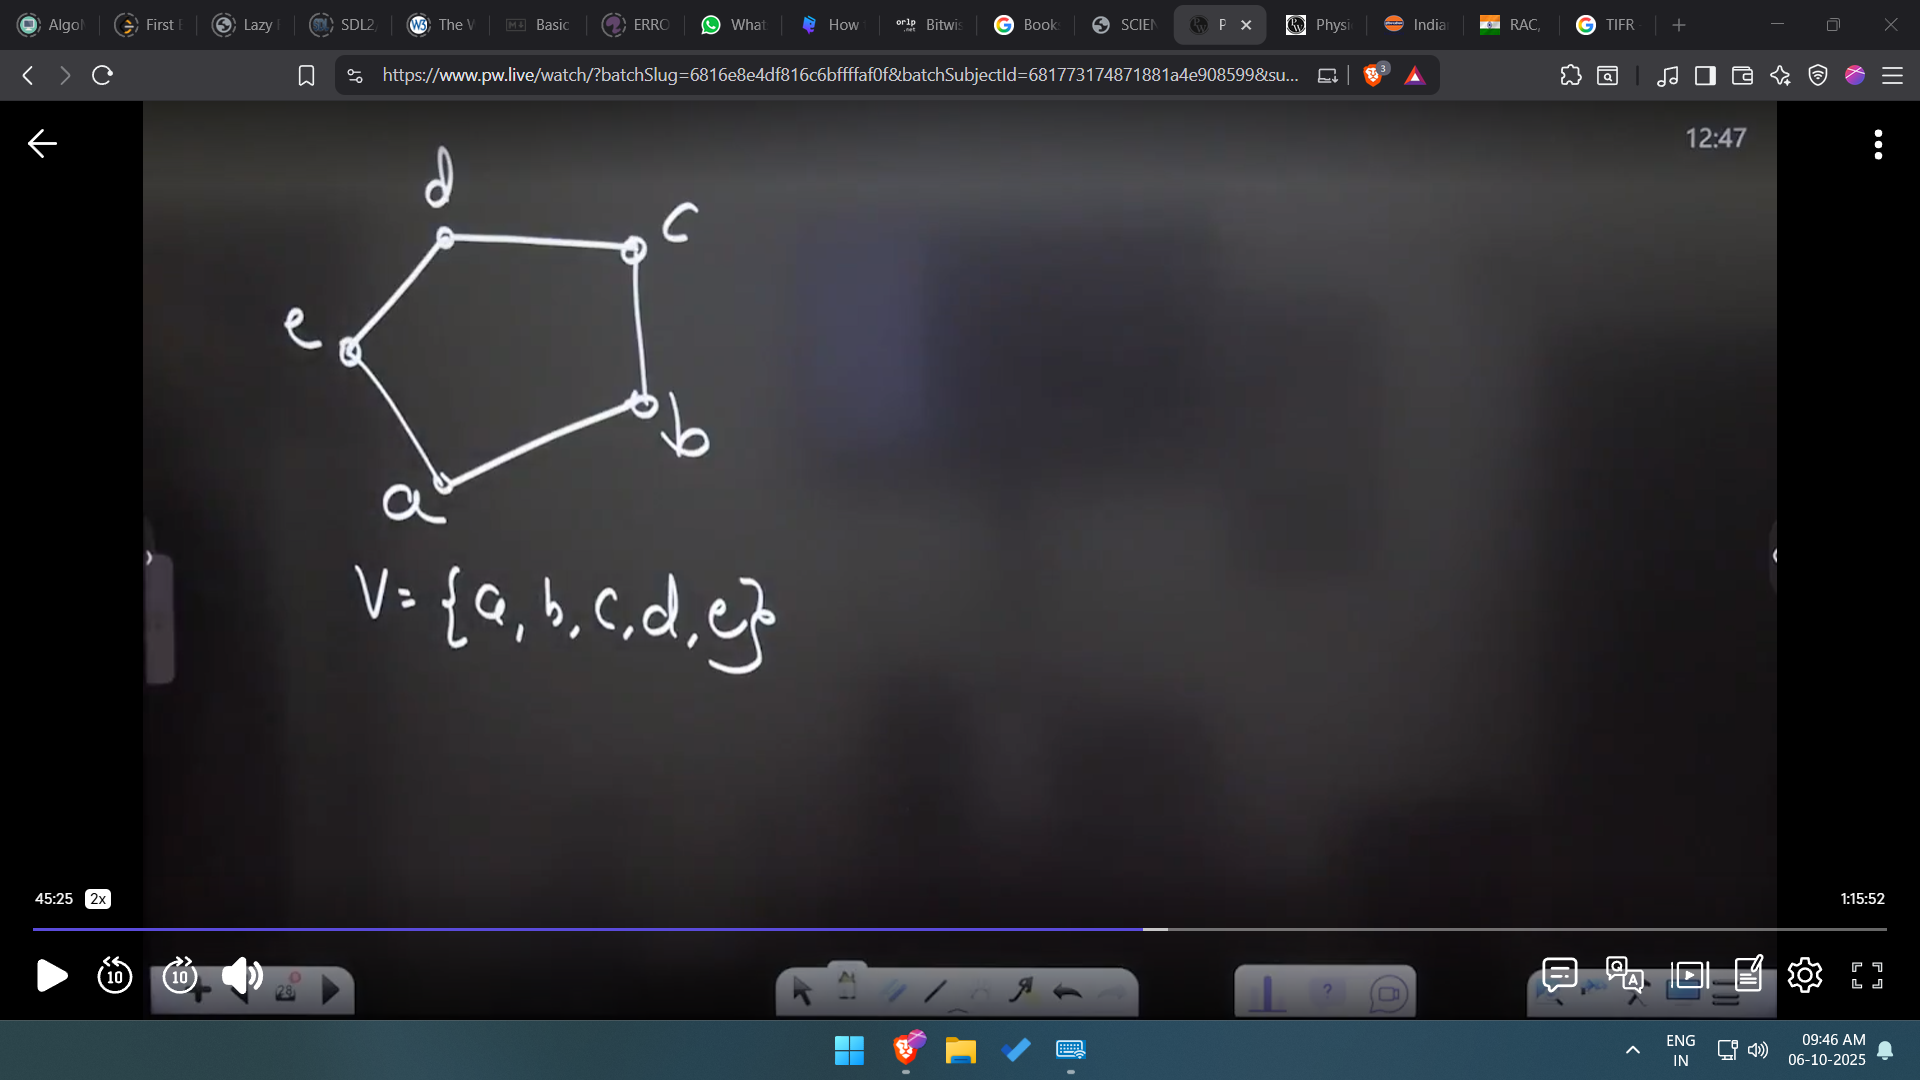 Algo
First
Lazy
SDL2
The W
Basic
ERRO
What
How
orlp
.net
Bitwis
Book
SCIEN
P
Physi
India
RAC,
TIFR
https://www.pw.live/watch/?batchSlug=6816e8e4df816c6bffffaf0f&batchSubjectId=681773174871881a4e908599&su...
3
12:47
d
c
e
b
a
V = {a, b, c, d, e}
45:25 2x
1:15:52
10
10
28
?
Q A
ENG
IN
09:46 AM
06-10-2025